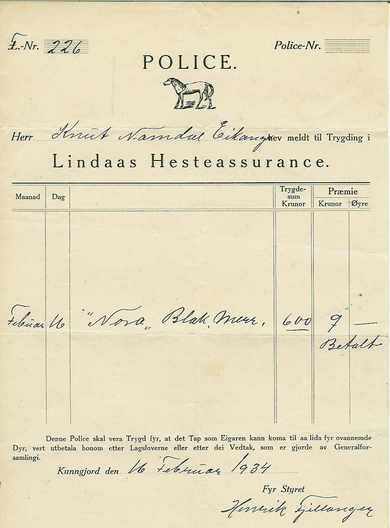 F.-Nr. 226 Police-Nr.
POLICE.
Herr Knut Namdal Eikanger ev meldt til Trygding i
Lindaas Hesteassurance.
Maanad Dag Trygde-sum Krunor Præmie Krunor Øyre
Februar 16 "Nora" Blak. Merr. 600 9 —
Betalt
Denne Police skal vera Trygd fyr, at det Tap som Eigaren kann koma til aa lida fyr ovannemde
Dyr, vert utbetala honom etter Lagsloverne eller etter dei Vedtak, som er gjorde av Generalfor-
samlingi.
Kunngjord den 16 Februar 1934
Fyr Styret
Henrik Fjellanger